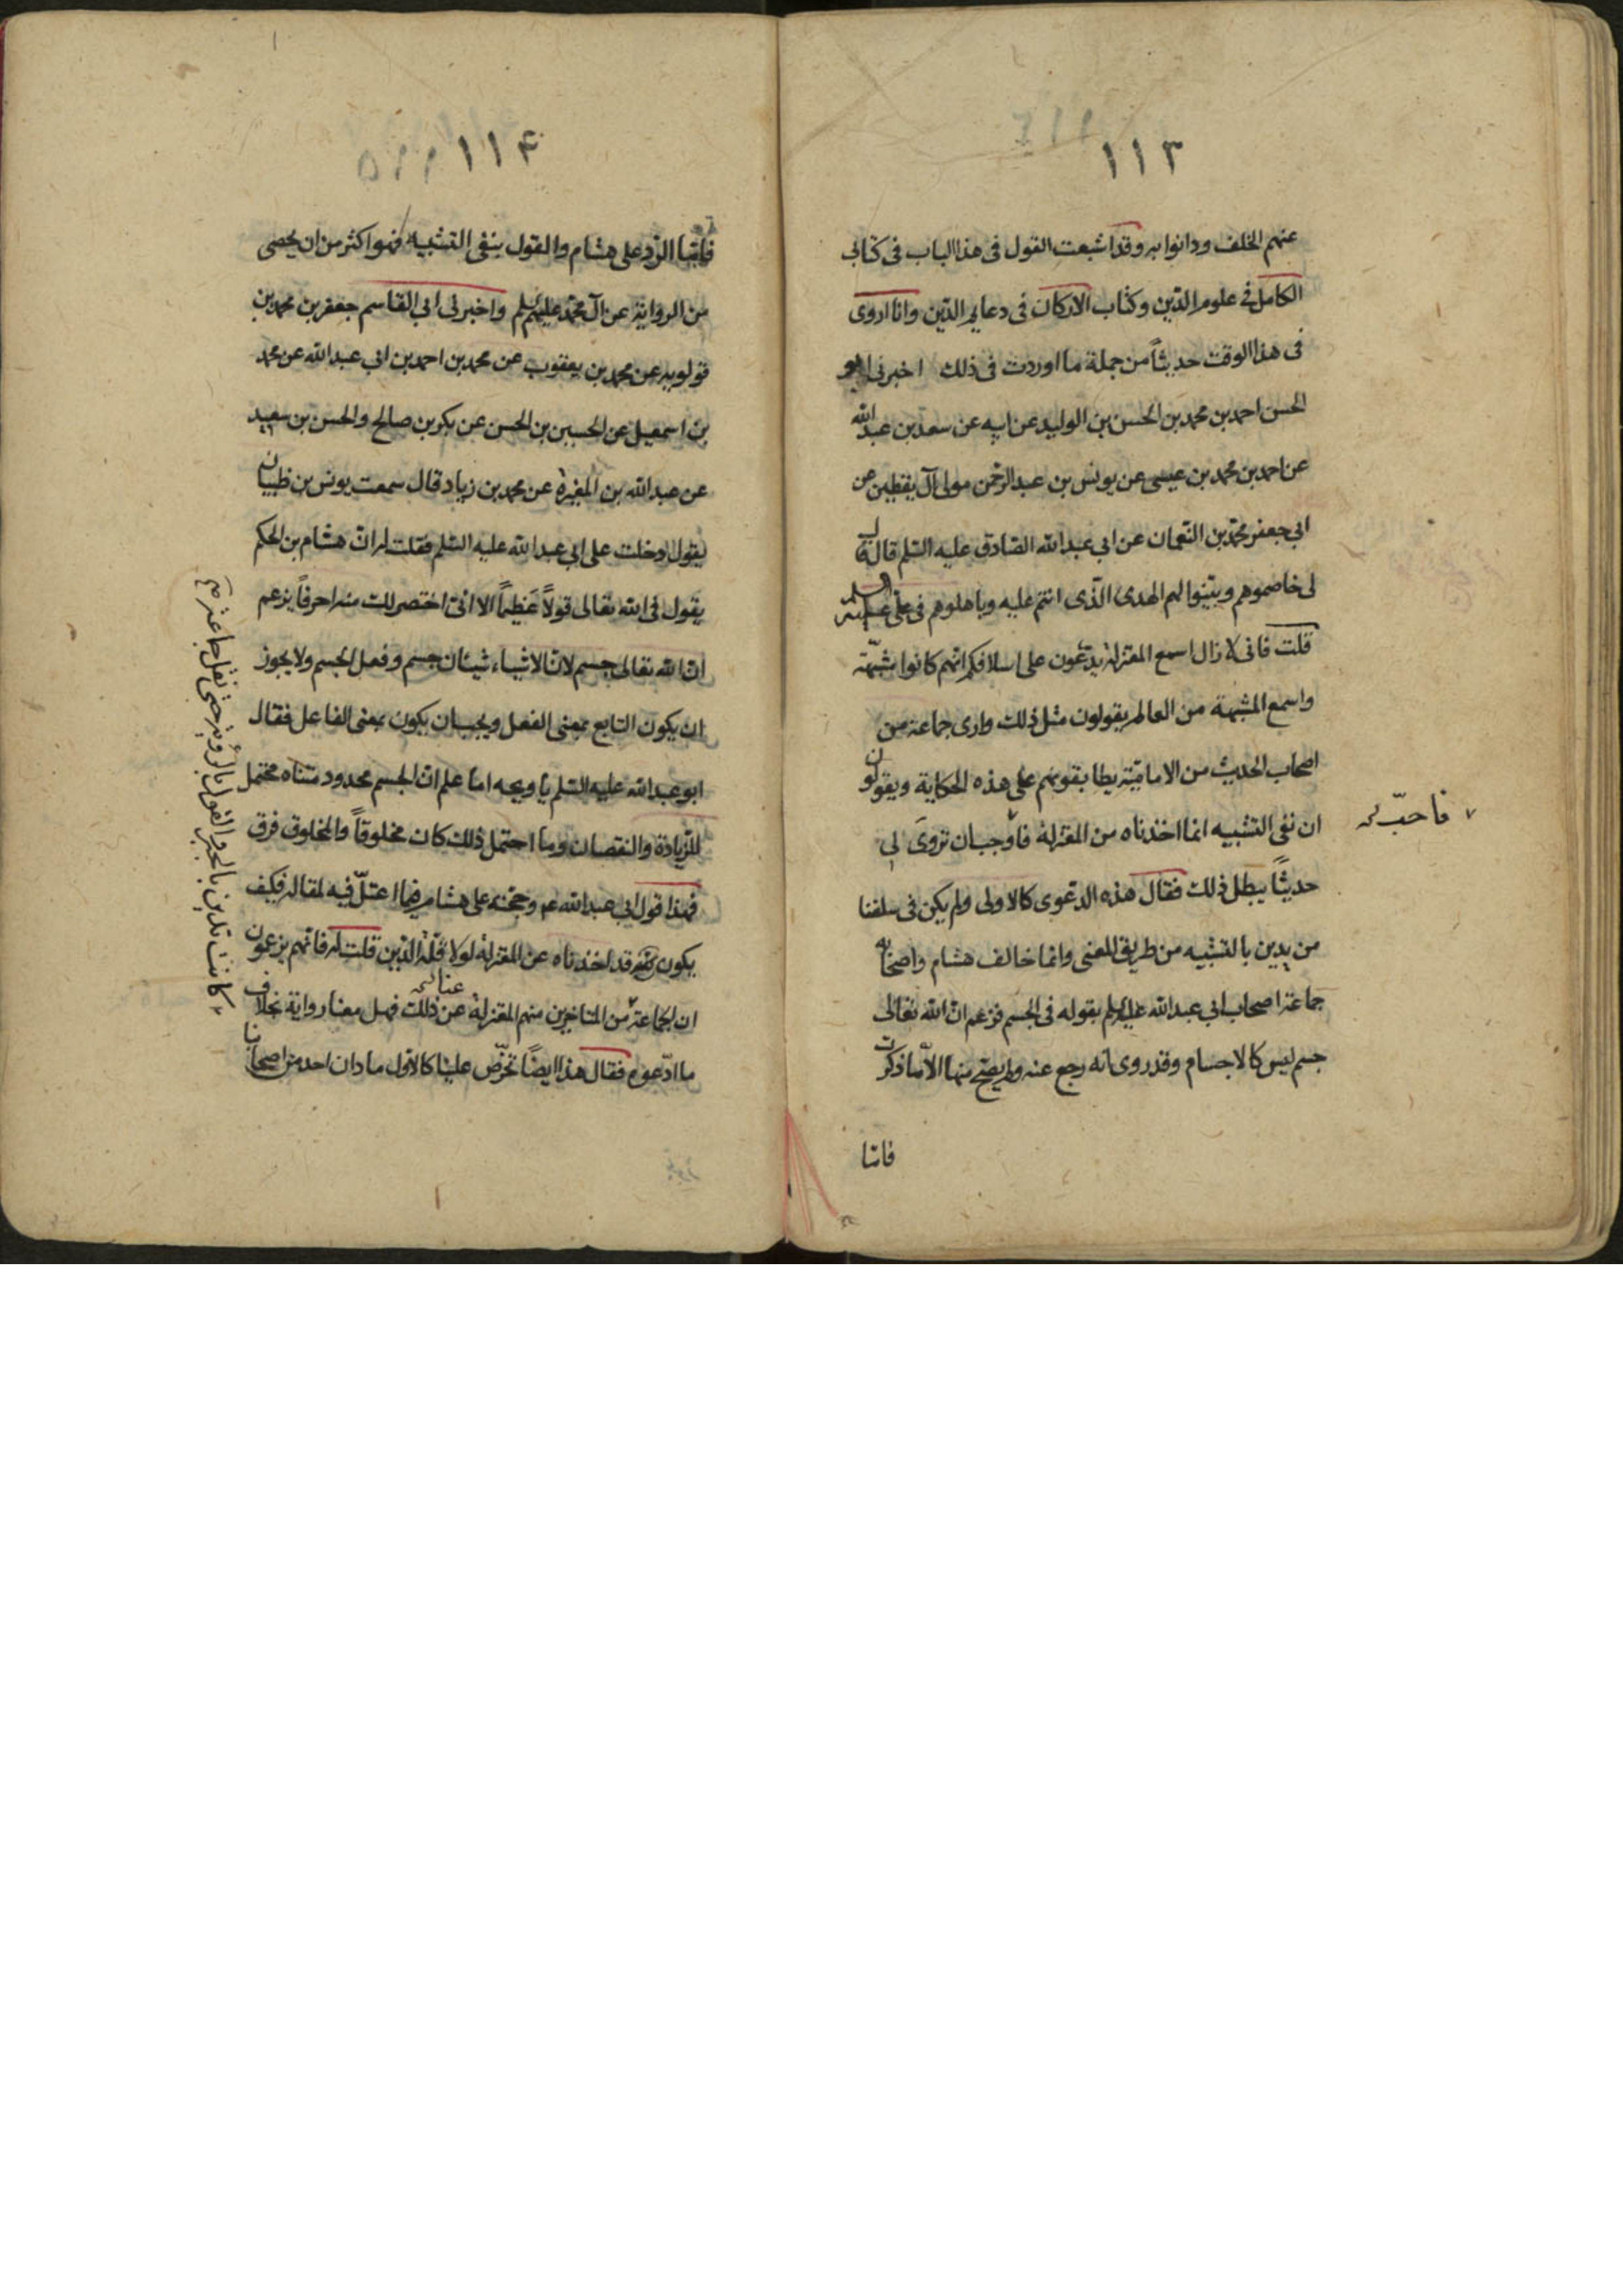 ١١٣
عنهم الخلف ودانوا به وقد اشبعت القول فى هذا الباب فى كتابى
الكامل فى علوم الدين وكتاب الاركان فى دعايم الدين وانا اروى
فى هذا الوقت حديثاً من جملة ما اوردت فى ذلك اخبرنى ابو
الحسن احمد بن محمد بن الحسن بن الوليد عن ابيه عن سعد بن عبد الله
عن احمد بن محمد بن عيسى عن يونس بن عبد الرحمن مولى آل يقطين عن
ابى جعفر محمد بن النعمان عن ابى عبد الله الصادق عليه السلم قال قال
لى خاصموهم وبينوا لهم الهدى الذى انتم عليه وباهلوهم فى على عليه السلم
قلت فانى لا زال اسمع المعتزلة يدعون على اسلافكم انهم كانوا مشبهة
واسمع المشبهة من العالم يقولون مثل ذلك وارى جماعة من
اصحاب الحديث من الامامية يطابقونهم على هذه الحكاية ويقولون
ان نفى التشبيه انما اخذناه من المعتزلة فاوجب ان تروى لى
فاحبّ
حديثاً يبطل ذلك فقال هذه الدعوى كالاولى ولم يكن فى سلفنا
من يدين بالتشبيه من طريق المعنى وانما خالف هشام واصحابه
جماعة اصحاب ابى عبد الله عليه السلم بقوله فى الجسم فزعم ان الله تعالى
جسم ليس كالاجسام وقد روى انه رجع عنه ولم يصح منها الا ما ذكرت
فاما
١١۴
فاما الرد على هشام والقول بنفى التشبيه فهو اكثر من ان يحصى
من الرواية عن آل محمد عليهم السلم واخبرنى ابى القاسم جعفر بن محمد بن
قولويه عن محمد بن يعقوب عن محمد بن احمد بن ابى عبد الله عن محمد
بن اسمعيل عن الحسين بن الحسن عن بكر بن صالح والحسن بن سعيد
عن عبد الله بن المغيرة عن محمد بن زياد قال سمعت يونس بن ظبيان
يقول دخلت على ابى عبد الله عليه السلم فقلت له ان هشام بن الحكم
يقول فى الله تعالى قولاً عظيماً الا انى اختصر لك منه احرفاً يزعم
ان الله تعالى جسم لان الاشياء شيئان جسم وفعل الجسم ولا يجوز
ان يكون التابع بمعنى الفعل ويجب ان يكون بمعنى الفاعل فقال
ابو عبد الله عليه السلم يا ويحه اما علم ان الجسم محدود متناه محتمل
للزيادة والنقصان وما احتمل ذلك كان مخلوقاً والمخلوق فرق
فهذا قول ابى عبد الله عم وحجته على هشام فيما اعتلّ فيه لمقاله فكيف
يكون قد اخذناه عن المعتزلة لولا قلة الدين قلت له فانهم يزعمون
ان الجماعة من المتاخرين منهم المعتزلة عن ذلك فهل معنا رواية بخلاف
ما ادعوه فقال هذا ايضاً تخرّص علينا كالاول ما دان احد من اصحابنا
كانت تدين بالجبر والقول بالرؤية حتى نقل جماعة